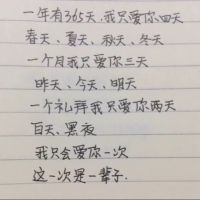 一年有365天,我只爱你四天
春天、夏天、秋天、冬天
一个月我只爱你三天
昨天、今天、明天
一个礼拜我只爱你两天
白天、黑夜
我只会爱你一次
这一次是一辈子.